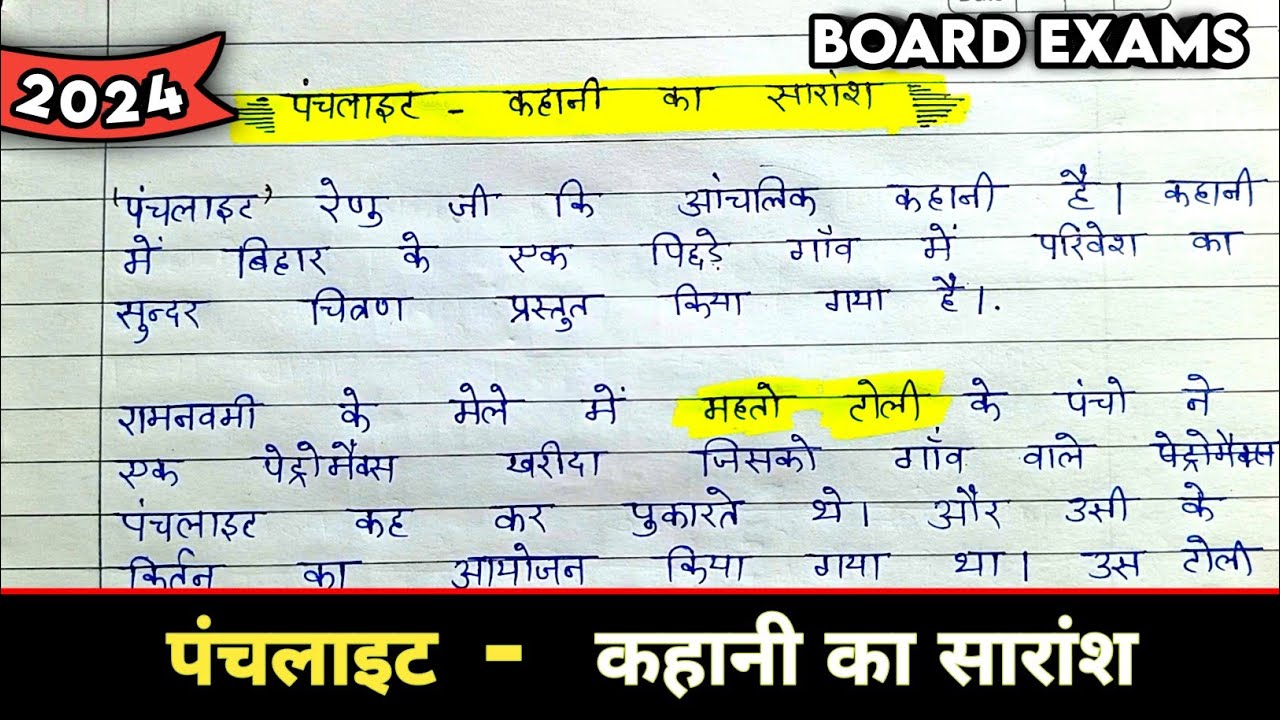 BOARD EXAMS
2024
पंचलाइट - कहानी का सारांश
'पंचलाइट' रेणु जी कि आंचलिक कहानी है। कहानी
में बिहार के एक पिछड़े गाँव में परिवेश का
सुन्दर चित्रण प्रस्तुत किया गया है।.
रामनवमी के मेले में महतो टोली के पंचो ने
एक पेट्रोमैक्स खरीदा जिसको गाँव वाले पेट्रोमैक्स
पंचलाइट कह कर पुकारते थे। और उसी के
किर्तन का आयोजन किया गया था। उस टोली
पंचलाइट - कहानी का सारांश